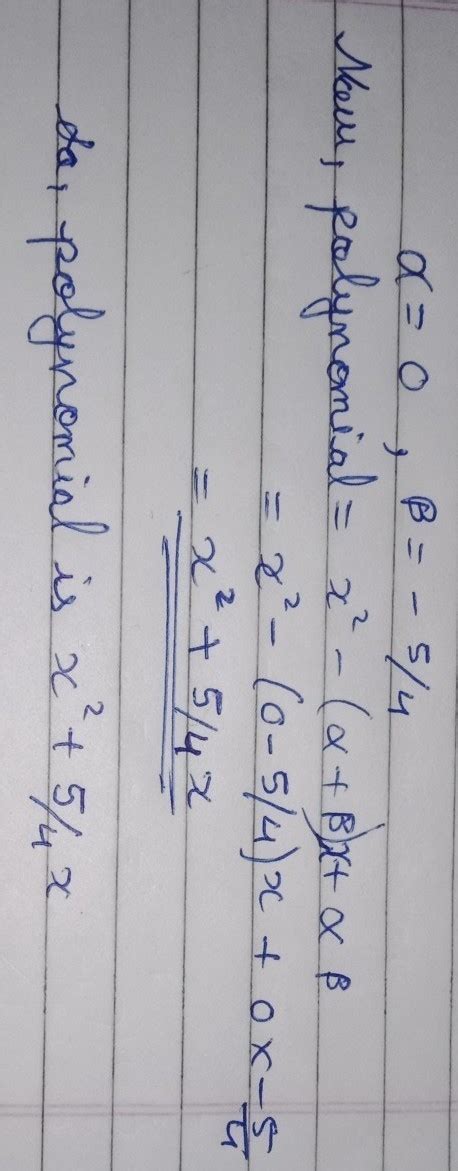 α = 0 , β = - 5/4
New, polynomial = x² - (α + β)x + α β
= x² - (0 - 5/4)x + 0 x -5/4
= x² + 5/4 x
So, polynomial is x² + 5/4 x